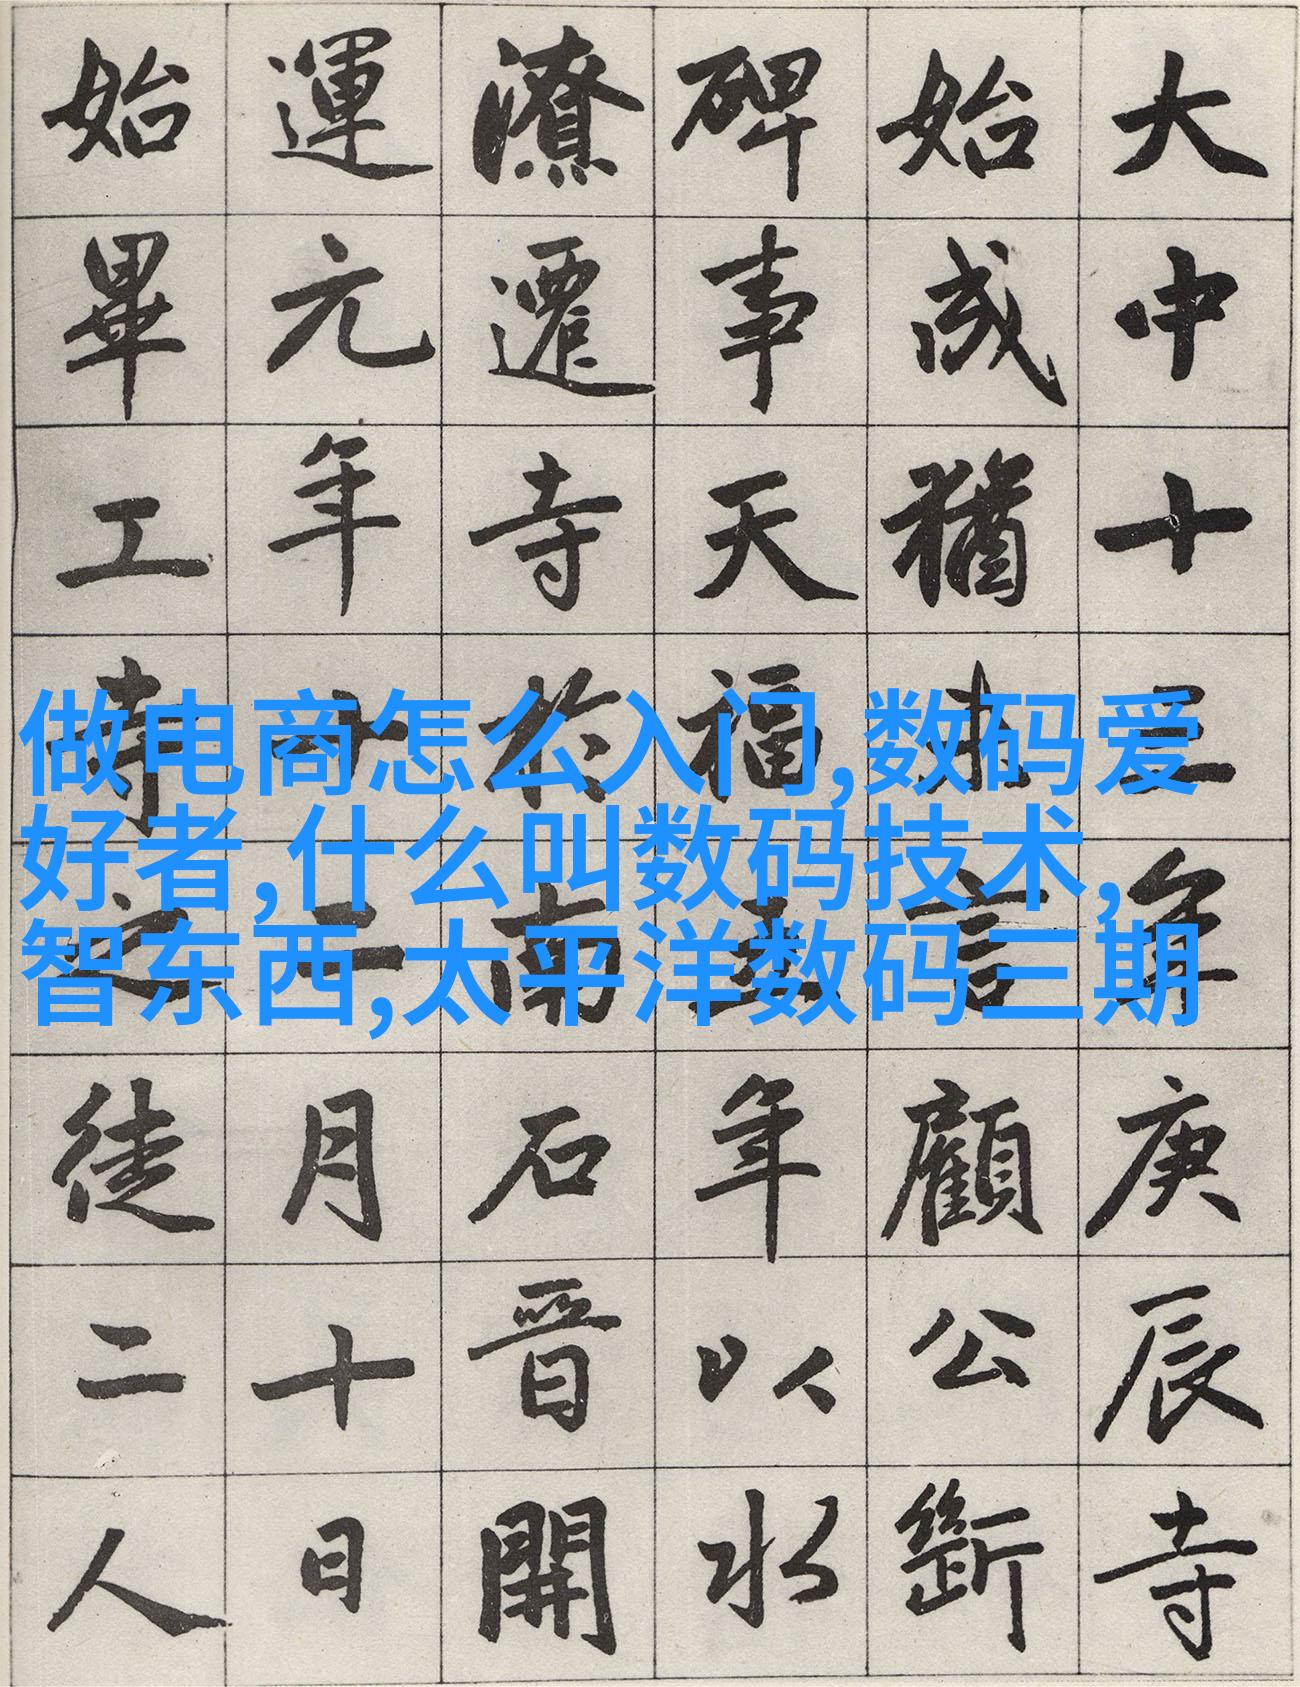 大中十年庚辰寺
始成猶未言顧公斷
碑事天福年以水
潦遷寺於南石晉開
運元年十二月十日
始畢工寺之徒二人
做电商怎么入门,数码爱
好者,什么叫数码技术,
智东西,太平洋数码三期